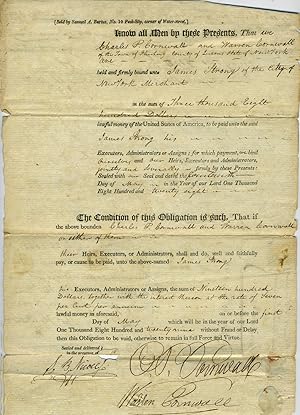 (Sold by Samuel A. Burtus, No. 19 Peck-Slip, corner of Water-street.)
Know all Men by these Presents, That we
Charles P. Cornwall and Warren Cornwall
of the Town of County of Queens State of New York
are
held and firmly bound unto James Strong of the City of
New York Merchant
in the sum of Three thousand Eight
hundred Dollars
lawful money of the United States of America, to be paid unto the said
James Strong his
Executors, Administrators or Assigns: for which payment, we bind
Ourselves and our Heirs, Executors and Administrators,
jointly and Severally firmly by these Presents:
Sealed with our Seal and dated
Day of May in the Year of our Lord One Thousand
Eight Hundred and twenty eight
The Condition of this Obligation is such, That if
the above bounden Charles P. Cornwall and Warren Cornwall
or either of them
their Heirs, Executors, Administrators, shall and do, well and faithfully
pay, or cause to be paid, unto the above-named James Strong
his Executors, Administrators or Assigns, the sum of Nineteen hundred
Dollars, together with the interest thereon at the rate of Seven
per Cent per annum
lawful money as aforesaid, on or before the first
Day of May which will be in the year of our Lord
One Thousand Eight Hundred and twenty nine without Fraud or Delay
then this Obligation to be void, otherwise to remain in full Force and Virtue.
Sealed and delivered
in the presence of
Cornwall
Cornwall